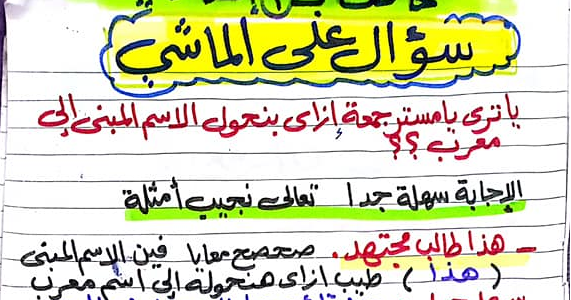 سؤال على الماشي
ياترى يامستر جمعة إزاى بنحول الاسم المبنى إلى
معرب ؟؟
الإجابة سهلة جدا تعالى نجيب أمثلة
- هذا طالب مجتهد. صحصح معايا فين الاسم المبنى
( هذا ) طيب ازاى هنحوله إلى اسم معرب